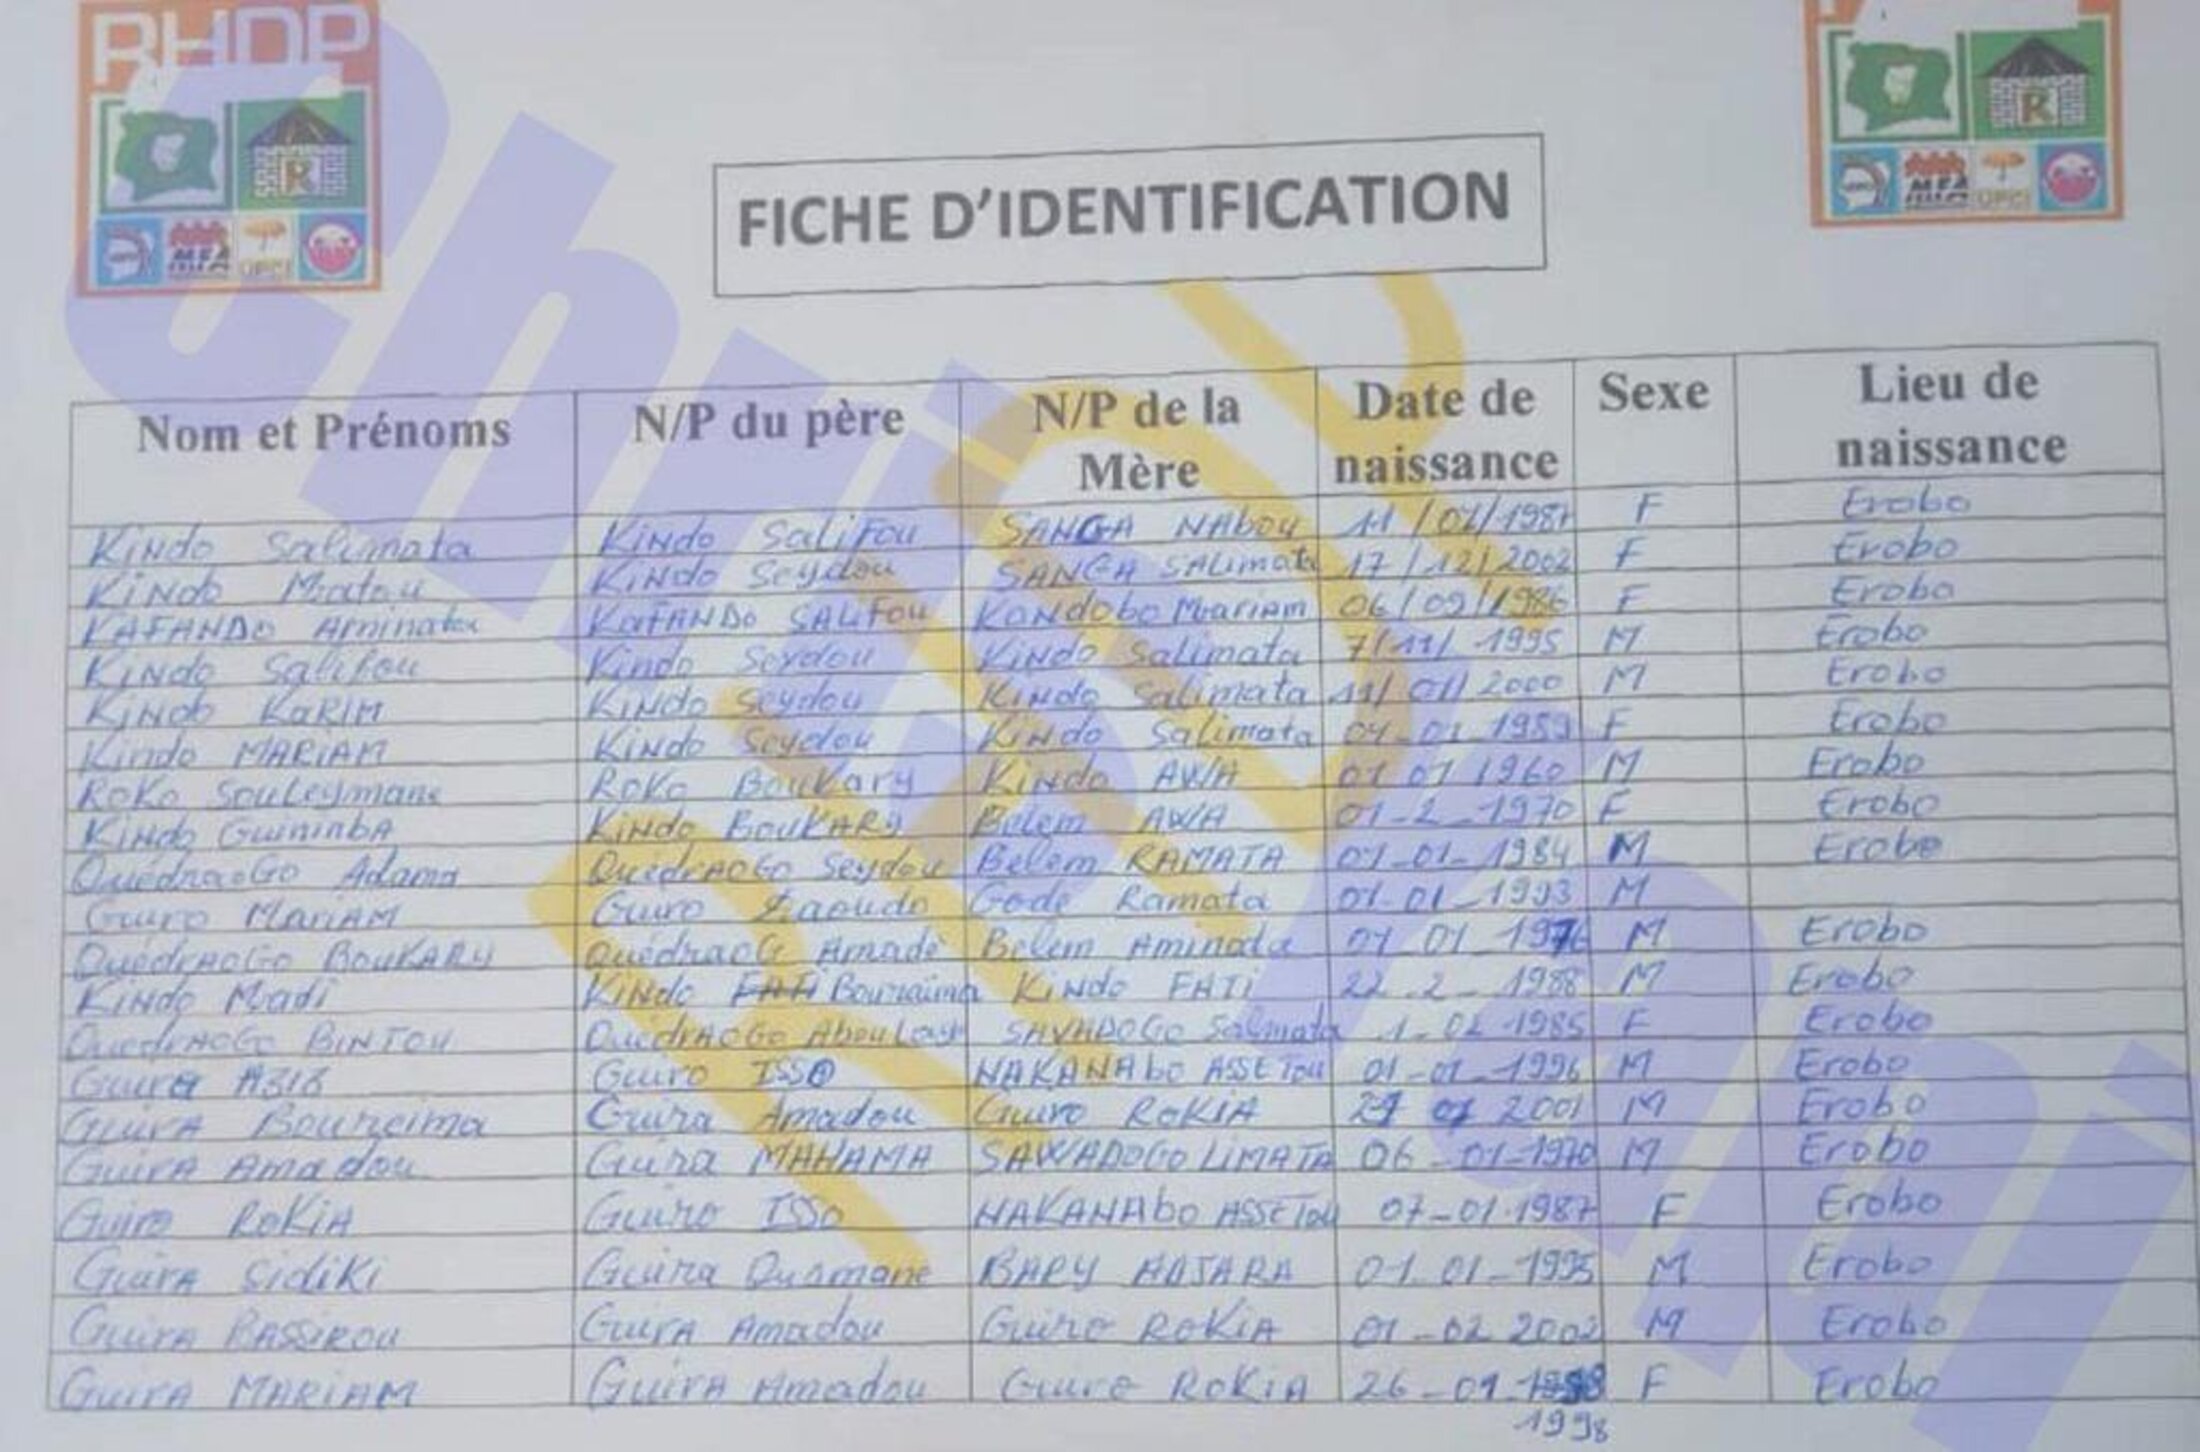 RHDP
R
MFA
UPCI
R
MFA
UPCI
FICHE D'IDENTIFICATION
Nom et Prénoms N/P du père N/P de la Mère Date de naissance Sexe Lieu de naissance
Kindo Salimata Kindo Salifou SANGA NAbou 11/02/1987 F Erobo
Kindo Matou Kindo Seydou SANGA SALimata 17/12/2002 F Erobo
KAFANDO Aminata KaFANDO SALiFou Kondobo Mariam 06/09/1986 F Erobo
Kindo Salifou Kindo Seydou Kindo Salimata 7/11/1995 M Erobo
Kindo KaRIM Kindo Seydou Kindo Salimata 11/01/2000 M Erobo
Kindo MARIAM Kindo Seydou Kindo Salimata 04 01 1989 F Erobo
RoKo Souleymane RoKo Boukary Kindo AWA 01 01 1960 M Erobo
Kindo Kindo BouKARy Belem AWA 01-2-1970 F Erobo
OuédraoGo Adama OuédrAoGo Seydou Belem RAMATA 01-01-1984 M Erobo
Guiro MariAM Guiro Godé Ramata 01-01-1993 M
OuédrAoGo BouKARy OuédraoG Amadé Belem Aminata 01 01 1976 M Erobo
Kindo Madi Kindo Bouraïma Kindo FATi 22-2-1988 M Erobo
OuédrAoGo BiNTou OuédrAoGo Aboulay SAVADOGO Salmata 1-02-1985 F Erobo
Guira Guiro ISSO NAKANAbo ASSETou 01-01-1996 M Erobo
GuirA Boureima Guira Amadou Guiro RoKiA 2001 M Erobo
GuirA Amadou Guira MAHAMA SAWADOGO LiMATA 06-01-1970 M Erobo
Guiro RoKiA Guiro ISSo NAKANAbo ASSETou 07-01-1987 F Erobo
GuirA SidiKi Guira Ousmane BARY 01-01-1995 M Erobo
GuirA BASSiROU GuirA Amadou Guiro RoKiA 01-02 2002 M Erobo
GuirA MARiAM GuirA Amadou Guiro RoKiA 26-01-1998 F Erobo
1998